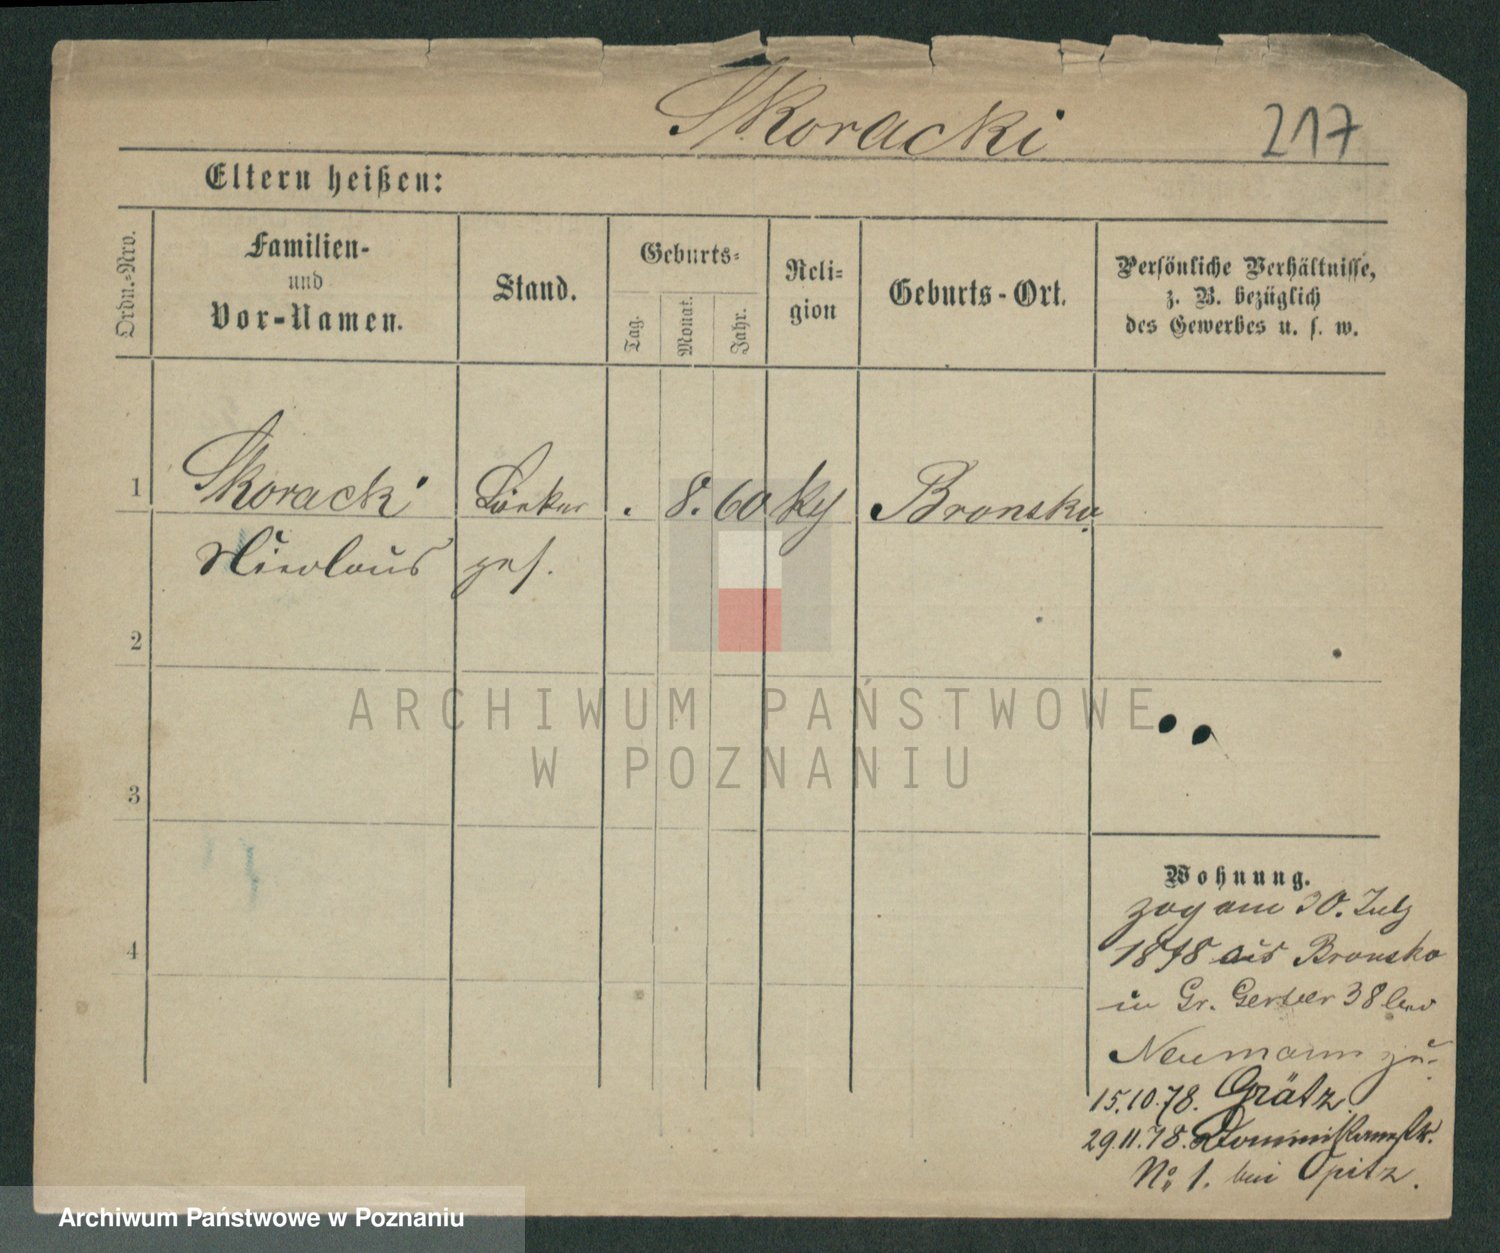 Skoracki
217
Eltern heißen:
Ordn.=Nro.
Familien-
und
Vor-Namen.
Stand.
Geburts=
Tag.
Monat.
Jahr.
Reli=
gion
Geburts-Ort.
Persönliche Verhältnisse,
z. B. bezüglich
des Gewerbes u. s. w.
1
Skoracki
. 8. 60
Bronsko
Nicolaus
ges.
2
3
4
ARCHIWUM PAŃSTWOWE
W POZNANIU
Wohnung.
zog am 30. July
1878 aus Bronsko
in Gr. Gerber 38 bei
Neumann zu.
15.10.78. Grätz.
29.11.78.
No 1. bei Opitz.
Archiwum Państwowe w Poznaniu